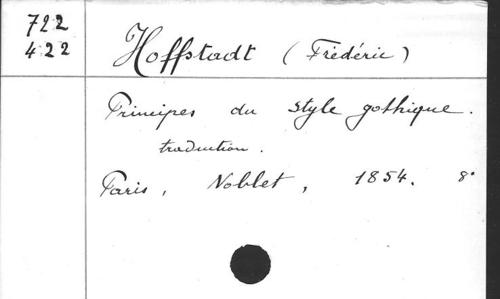 722
422
Hoffstadt (Frédéric)
Principes du style gothique.
traduction.
Paris, Noblet, 1854. 8°